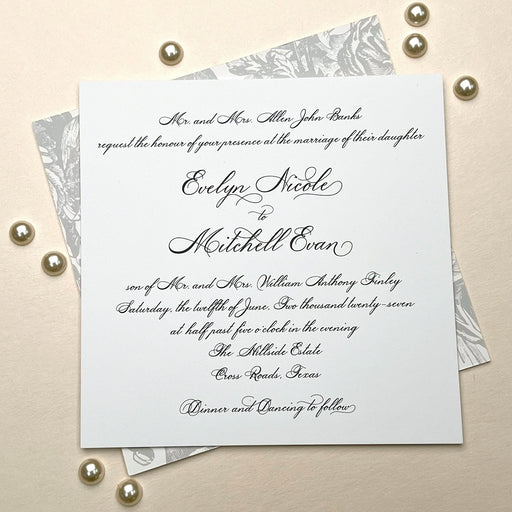 Mr. and Mrs. Allen John Banks
request the honour of your presence at the marriage of their daughter
Evelyn Nicole
to
Mitchell Evan
son of Mr. and Mrs. William Anthony Finley
Saturday, the twelfth of June, Two thousand twenty-seven
at half past five o'clock in the evening
The Hillside Estate
Cross Roads, Texas
Dinner and Dancing to follow